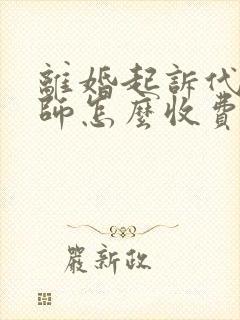 離婚起訴代
師怎麼收費
嚴新政